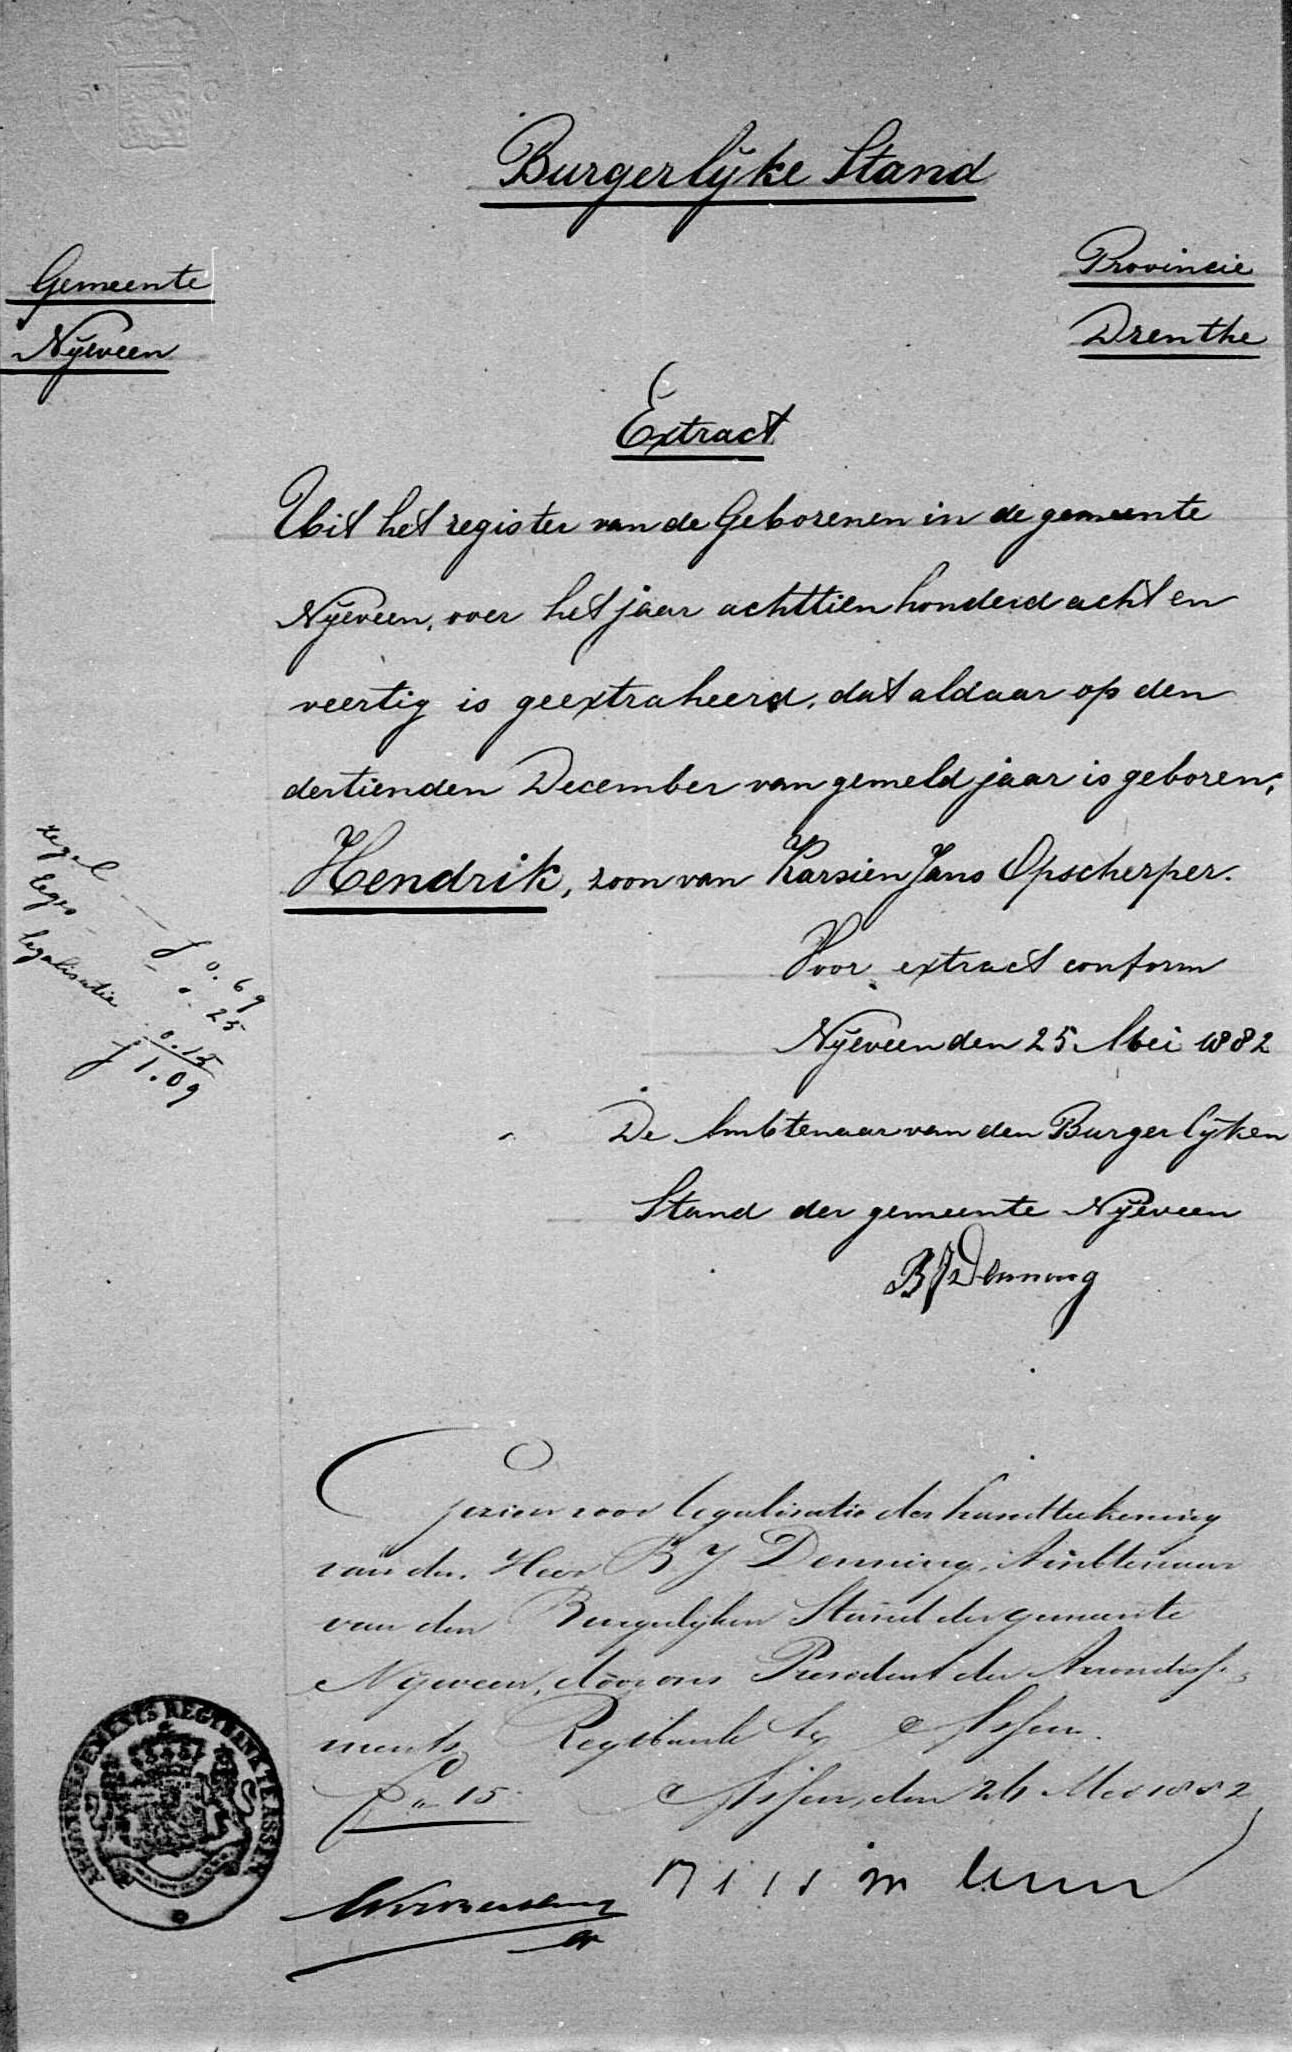 Burgerlijke Stand
Gemeente
Nijeveen
Provincie
Drenthe
Extract
Uit het register van de Geborenen in de gemeente
Nijeveen, over het jaar achttien honderd acht en
veertig is geextraheerd, dat aldaar op den
dertienden December van gemeld jaar is geboren,
Hendrik, zoon van Karsien Jans Opscherper.
zegel f 0.69
leges - 0.25
legalisatie 0.15
f 1.09
Voor extract conform
Nijeveen den 25 Mei 1882
De Ambtenaar van den Burgerlijken
Stand der gemeente Nijeveen
BJDenning
Gezien voor legalisatie der handteekening
van den Heer B. J Denning, Ambtenaar
van den Burgerlijken Stand der gemeente
Nijeveen, door ons President der Arrondisse-
ments Regtbank te Assen.
f " 15 Assen, den 26 Mei 1882
ARRONDISSEMENTS REGTBANK TE ASSEN